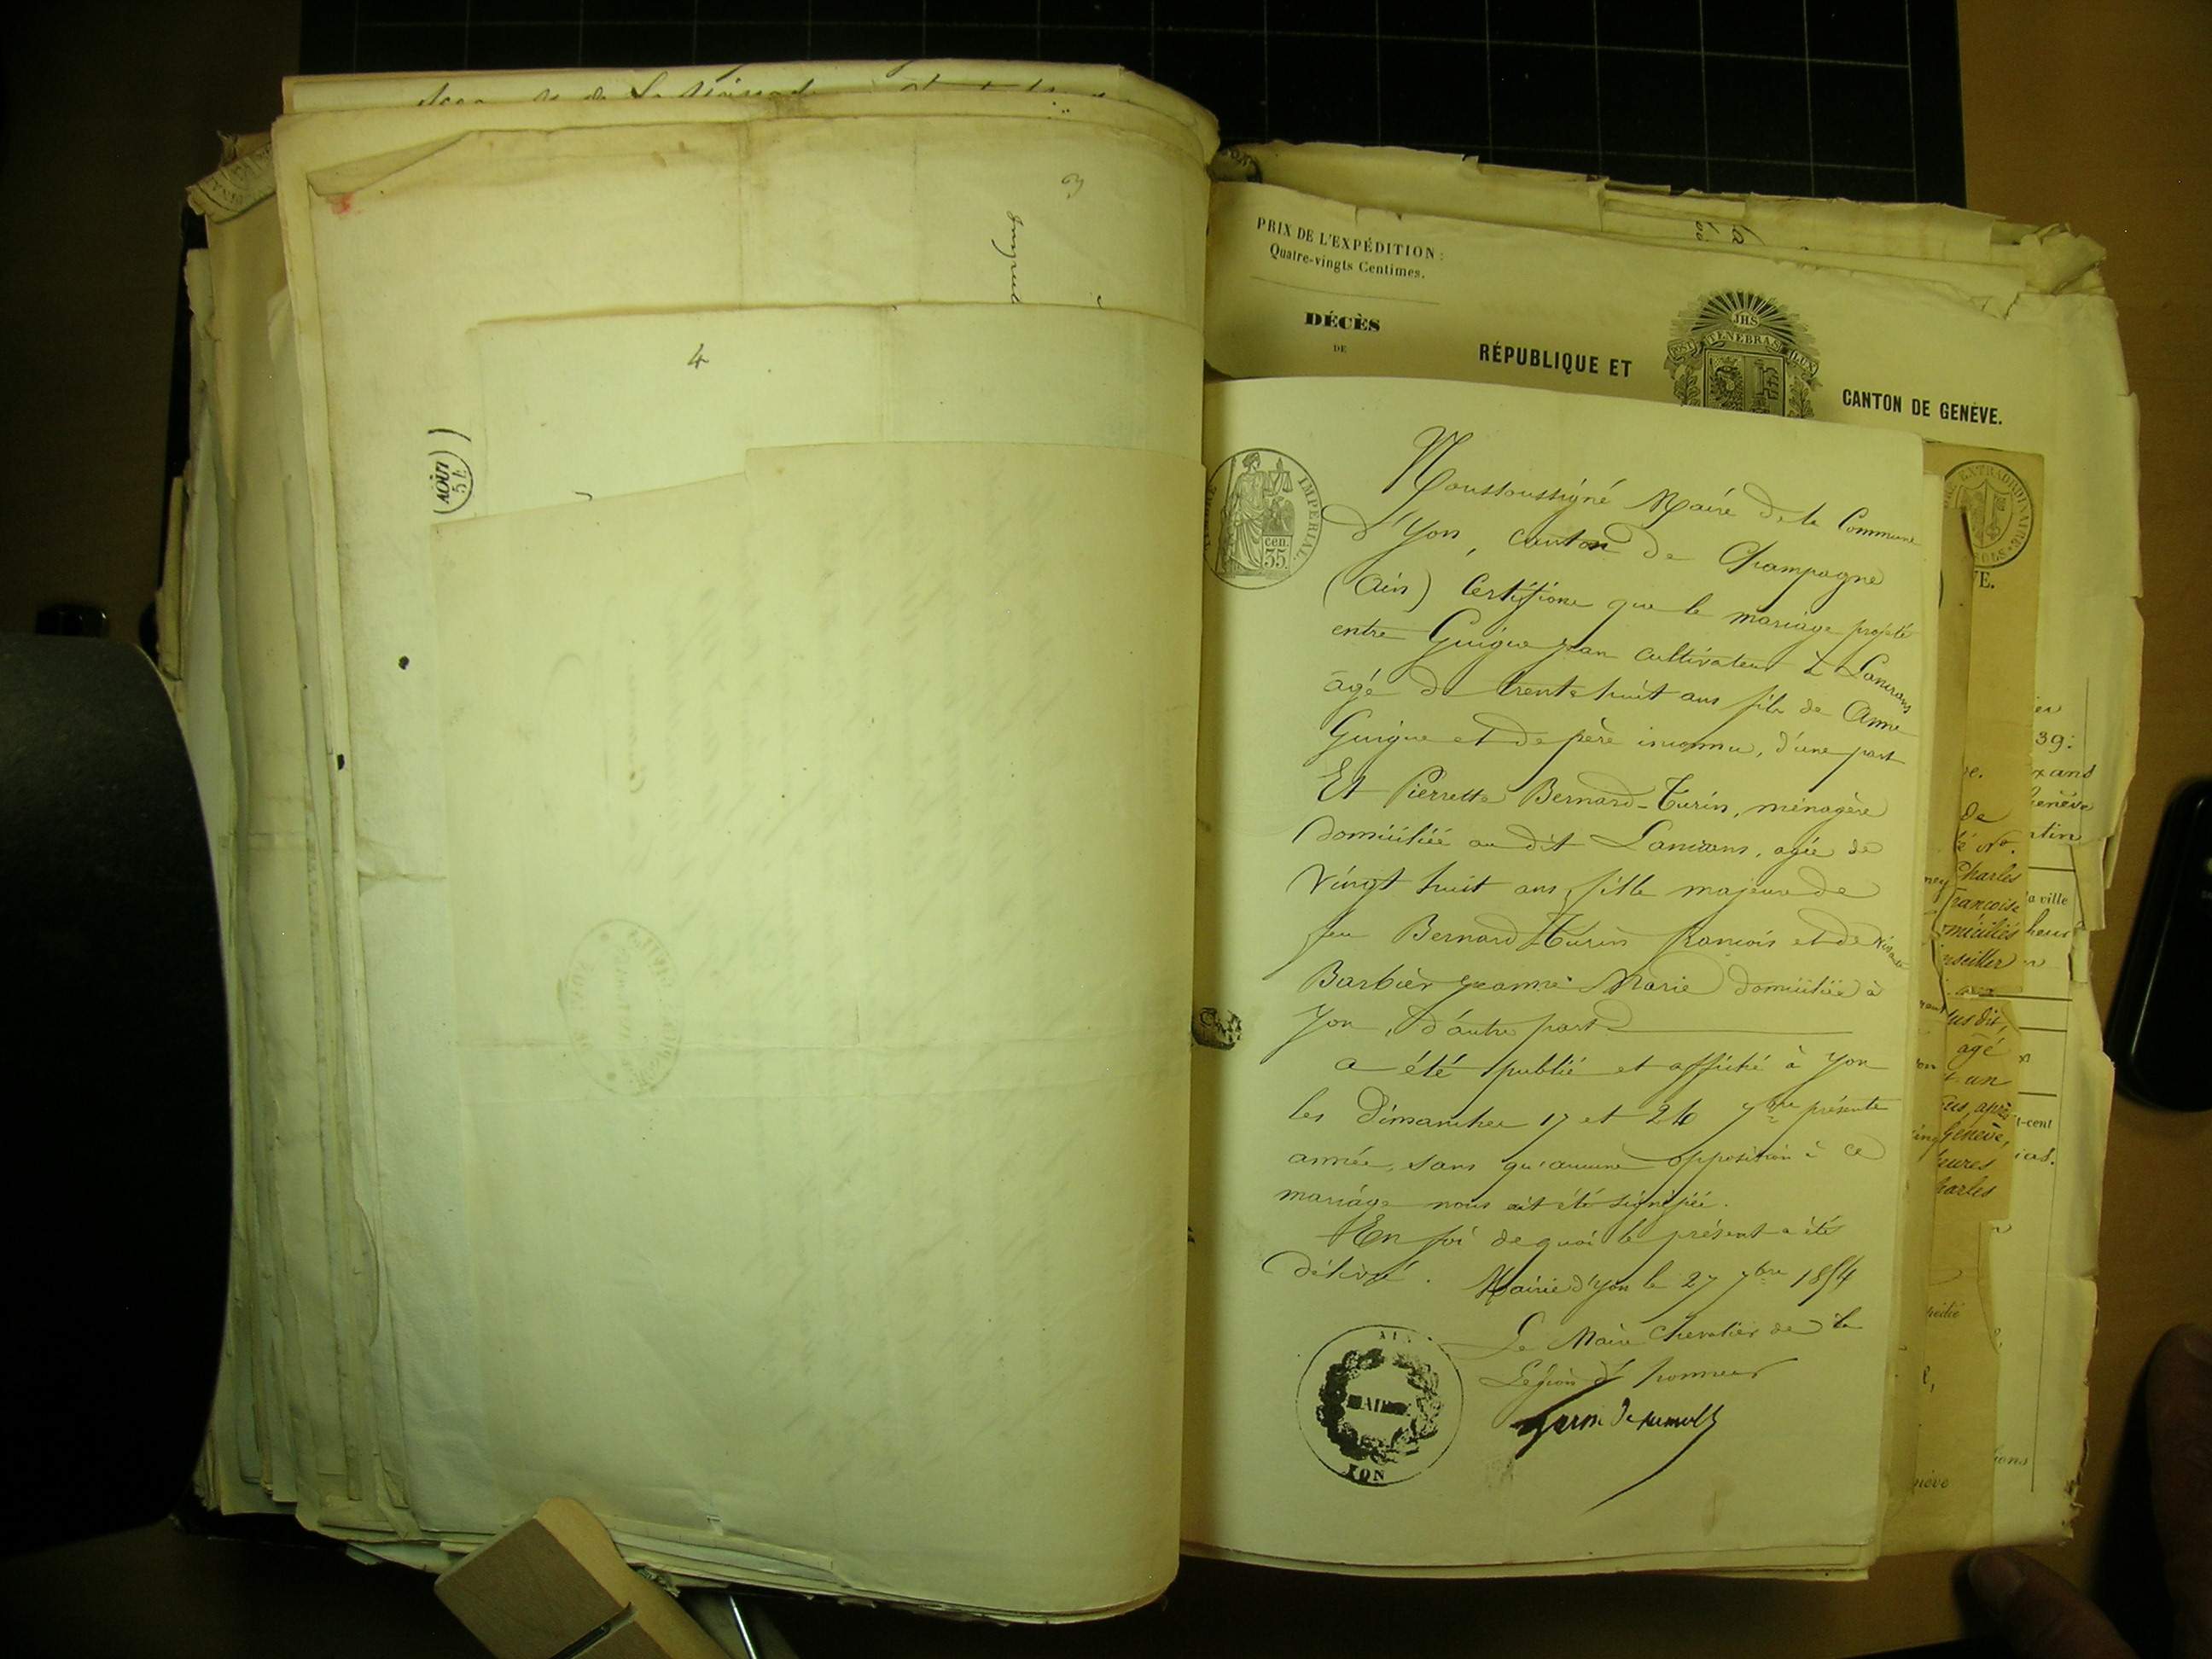 4
AOÛT
54
PRIX DE L'EXPÉDITION :
Quatre-vingts Centimes.
DÉCÈS
DE
RÉPUBLIQUE ET
JHS
POST TENEBRAS LUX
CANTON DE GENÈVE.
IMPERIAL.
cen.
35.
Noussoussigné Maire de la Commune
d'Yon, canton de Champagne
(Ain) Certifions que le mariage projeté
entre Guigue Jean cultivateur à Lancrans
âgé de trente huit ans fils de Anne
Guigue et de père inconnu, d'une part
Et Pierrette Bernard-Turin, ménagère
domiciliée au dit Lancrans, agée de
vingt huit ans, fille majeure de
feu Bernard Turin francois et de vivante
Barbier Jeanne Marie domiciliée à
Yon, d'autre part
a été publié et affiché à Yon
les Dimanches 17 et 24 7bre présente
année, sans qu'aucune opposition à ce
mariage nous ait été signifiée.
En foi de quoi le présent a été
délivré. Mairie d'Yon le 27 7bre 1854
Le Maire Chevalier de la
Légion d'honneur
MAIRIE
YON
EXTRAORDINAIRE
VE.
39:
de
Charles
Francoise
a ville
domiciliés
conseiller
sus dit,
agé
un
t-cent
Genève,
heures
Charles